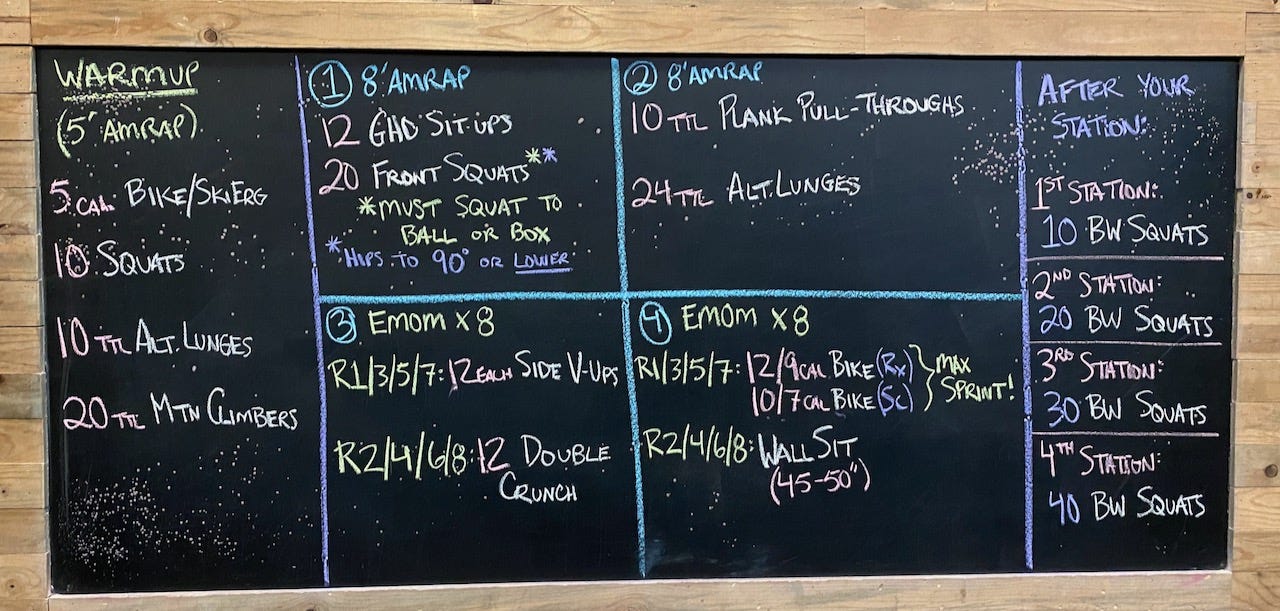 WARMUP
(5' AMRAP)
5 CAL BIKE/SKIERG
10 SQUATS
10 TTL ALT. LUNGES
20 TTL MTN CLIMBERS
① 8' AMRAP
12 GHD SIT UPS
20 FRONT SQUATS**
*MUST SQUAT TO
BALL OR BOX
*HIPS TO 90° OR LOWER
② 8' AMRAP
10 TTL PLANK PULL-THROUGHS
24 TTL ALT. LUNGES
③ EMOM X 8
R1/3/5/7: 12 EACH SIDE V-UPS
R2/4/6/8: 12 DOUBLE
CRUNCH
④ EMOM X 8
R1/3/5/7: 12/9 CAL BIKE (RX) } MAX
10/7 CAL BIKE (SC) SPRINT!
R2/4/6/8: WALL SIT
(45-50")
AFTER YOUR
STATION:
1ST STATION:
10 BW SQUATS
2ND STATION:
20 BW SQUATS
3RD STATION:
30 BW SQUATS
4TH STATION:
40 BW SQUATS